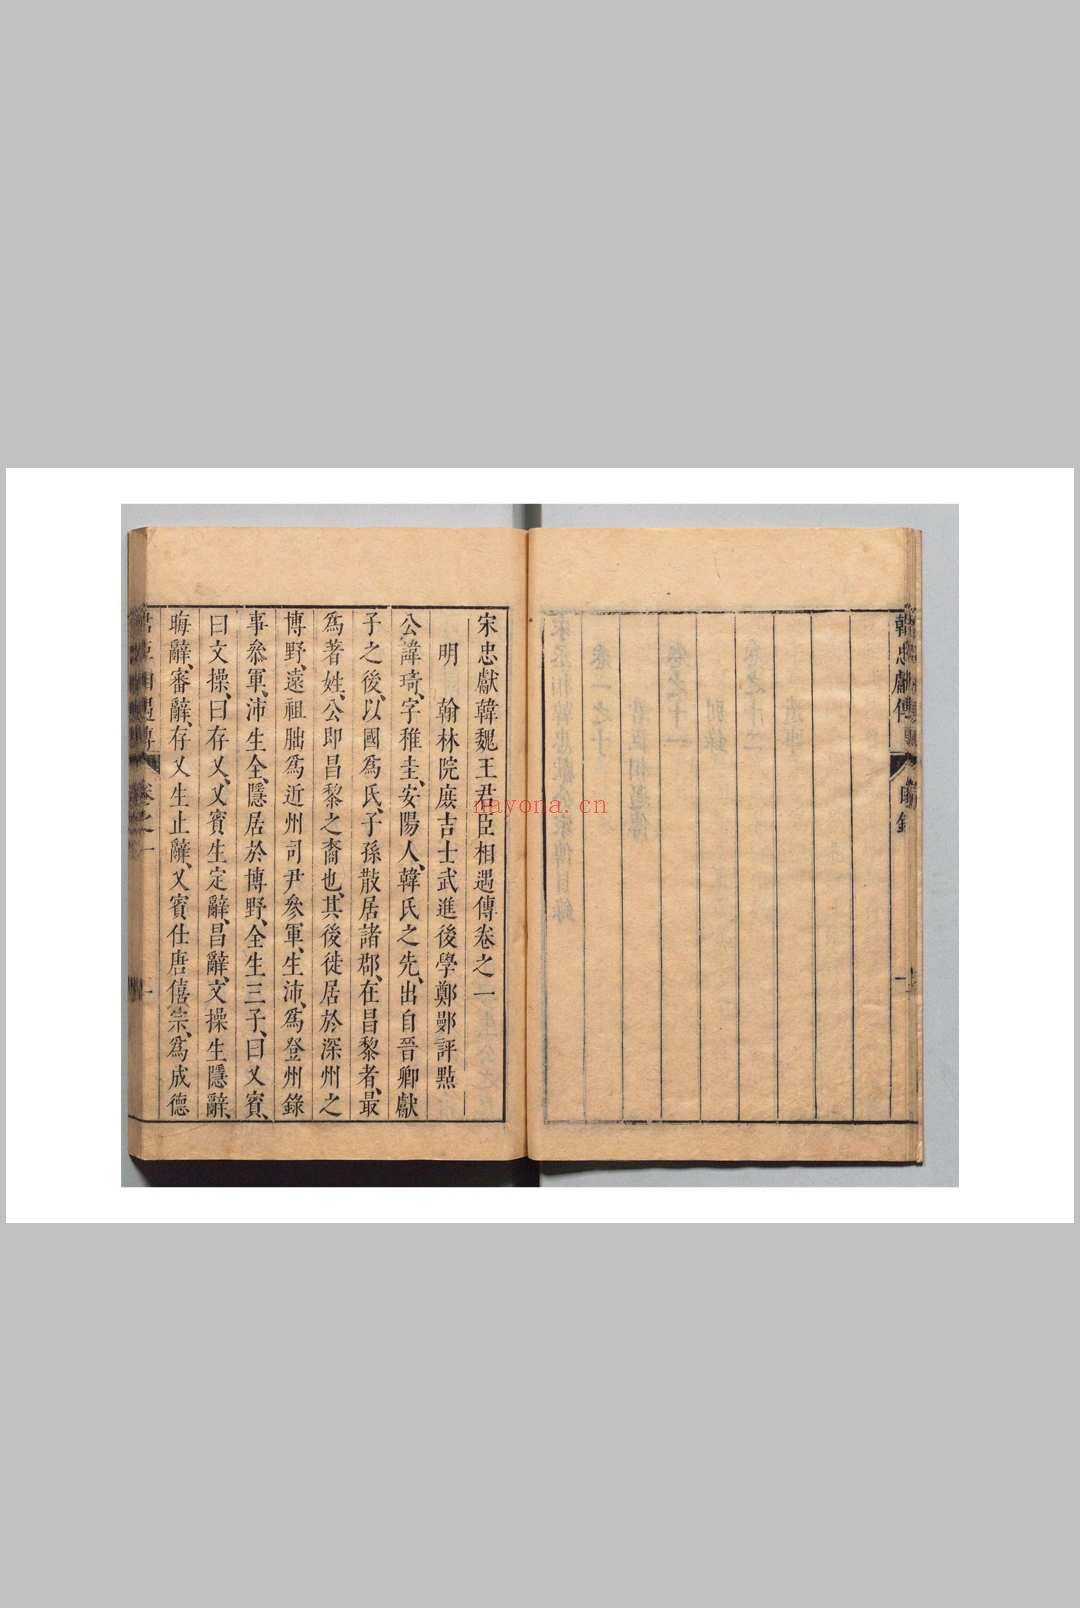 韓忠獻傳
目錄
一
宋忠獻韓魏王君臣相遇傳卷之一
明　翰林院庻吉士武進後學鄭鄤評點
公諱琦、字稚圭、安陽人、韓氏之先、出自晉卿獻
子之後、以國爲氏、子孫散居諸郡、在昌黎者、最
爲著姓、公即昌黎之裔也、其後徙居於深州之
博野、遠祖朏爲近州司尹叅軍、生沛、爲登州錄
事叅軍、沛生全、隱居於博野、全生三子、曰乂賓、
曰文操、曰存乂、乂賓生定辭、昌辭、文操生隱辭、
晦辭、審辭、存乂生止辭、乂賓仕唐僖宗、爲成德
君臣相遇傳
卷之一
一
nayona.cn